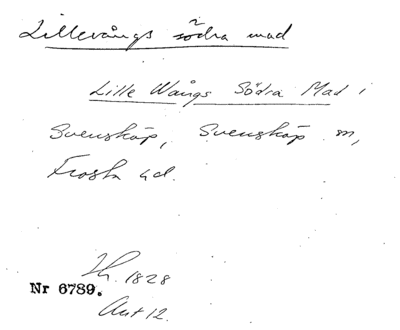 Lillevångs södra mad
Lille Wångs Södra Mad i
Svenskåp, Svenskåp sn,
Frosta hd.
1828
Nr 6789.
Akt 12.